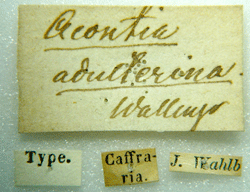 Acontia
adulterina
Wallengr
Type.
Caffra-
ria.
J. Wahlb